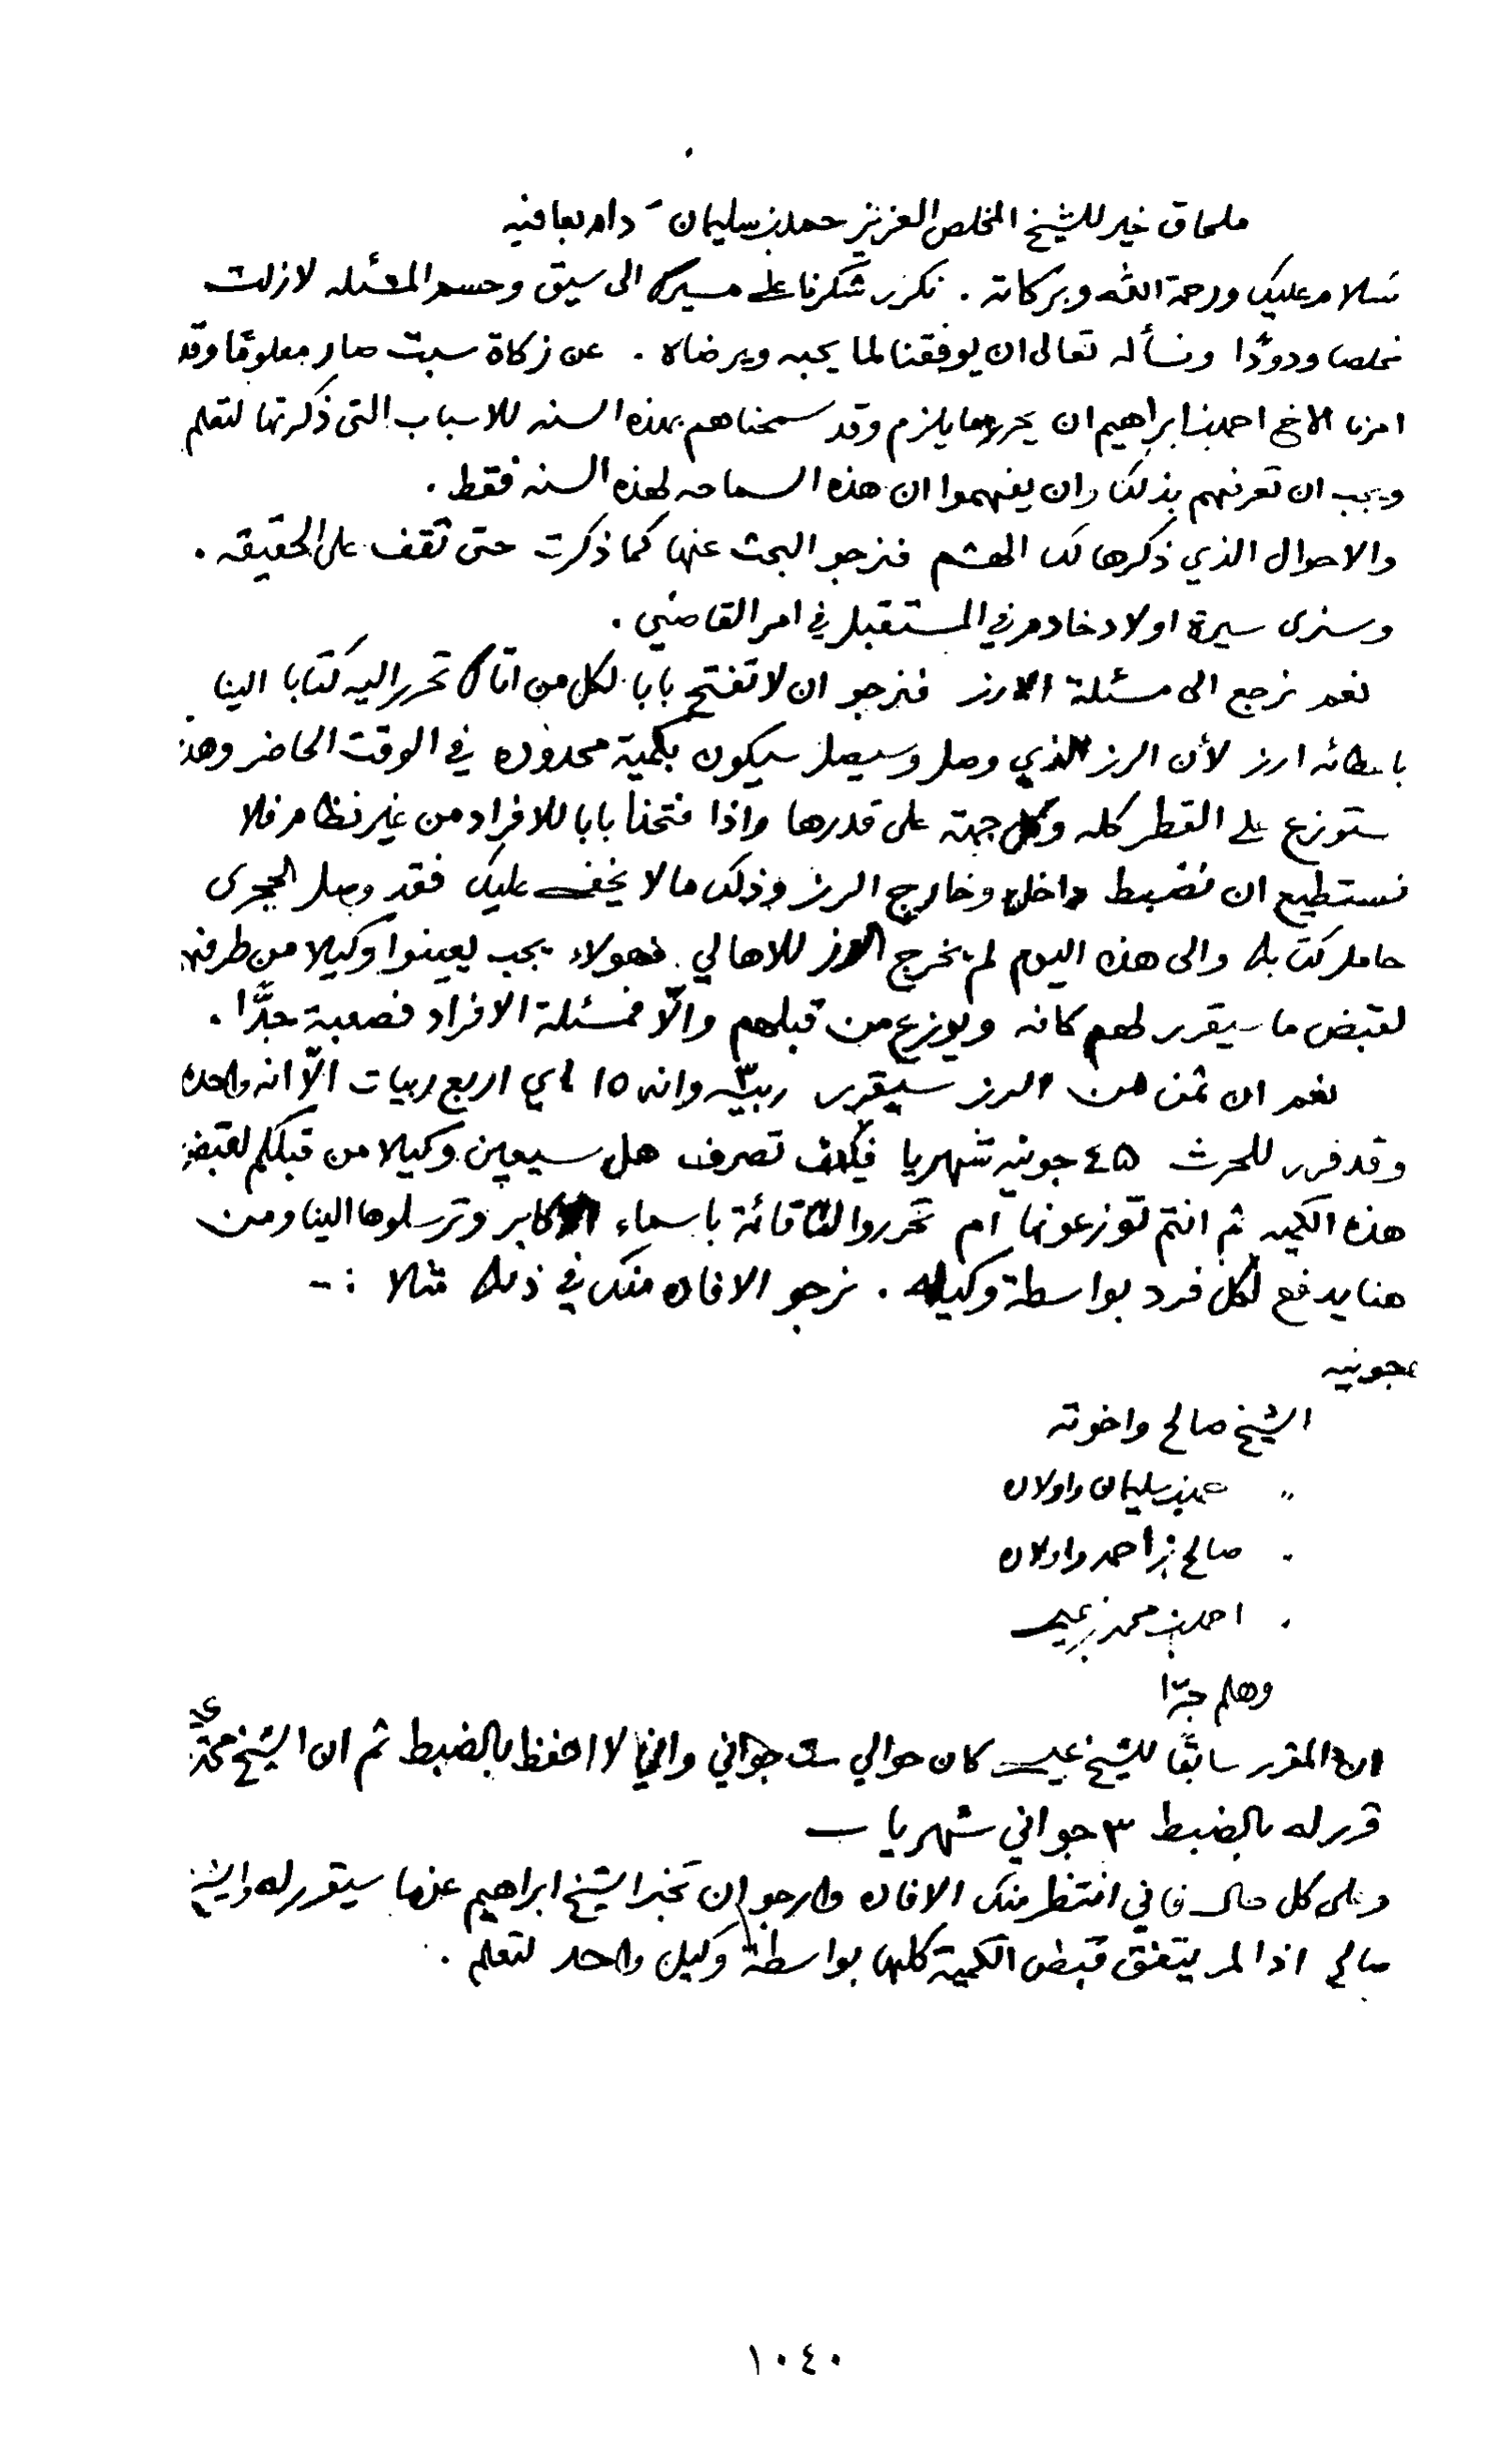 ملحاق خير للشيخ المخلص العزيز حمد بن سليمان دام بعافيه
سلام عليك ورحمة الله وبركاته . نكرر شكرنا على مسيرك الى سيق وحسم المسئله لازلت
مخلصا ودودًا ونسأله تعالى ان يوفقنا لما يحبه ويرضاه . عن زكاة سبت صار معلومًا وقد
امرنا الاخ احمد بن ابراهيم ان يحرر ما يلزم وقد سمحناهم بهذه السنه للاسباب التى ذكرتها لتعلم
ويجب ان تعرفهم بذلك وان يفهموا ان هذه السماحه لهذه السنه فقط .
والاحوال الذي ذكرها لك الهشم فنرجو البحث عنها كما ذكرت حتى تقف على الحقيقه .
وسنرى سيرة اولاد خادم في المستقبل في امر القاضي .
نعم نرجع الى مسئلة الارز فنرجو ان لا تفتح بابا لكل من اتاك تحرر اليه كتابا الينا
باعطائه ارز لأن الرز الذي وصل وسيصل سيكون بكمية محدوده في الوقت الحاضر وهذه
ستوزع على القطر كله وكل جهة على قدرها واذا فتحنا بابا للافراد من غير نظام فلا
نستطيع ان نضبط داخل وخارج الرز وذلك ما لا يخفى عليك فقد وصل الحجرى
حامل كتابك والى هذه اليوم لم يخرج الرز للاهالي فهولاء يجب يعينوا وكيلا من طرفهم
لقبض ما سيقرر لهم كافه ويوزع من قبلهم والّا فمسئلة الافراد فصعبية جدًّا .
نعم ان ثمن من الرز سيقرر ٣ ربيّه وانه ١٥ اي اربع ربيات الّا انه واحده
وقد قرر للحرث ٤٥ جونيه شهريا فكيف تصرف هل سيعين وكيلا من قبلكم لقبض
هذه الكميه ثم انتم توزعونها ام تحرروا لنا قائمة باسماء الاكابر وترسلوها الينا ومن
هنا يدفع لكل فرد بواسطة وكيله . نرجو الافاده منك في ذلك مثلا :-
جونيه
الشيخ صالح واخوته
" حمد بن سليمان واولاده
" صالح بن احمد واولاده
" احمد بن محمد بن عيسى
وهلم جرّا
ان المقرر سابقًا للشيخ عيسى كان حوالي ست جواني واني لا احفظ بالضبط ثم ان الشيخ محمد
قرر له بالضبط ٣ جواني شهريا
وعلى كل حال فاني انتظر منك الافاده وارجو ان تخبر الشيخ ابراهيم عن ما سيقرر له والشيخ
صالح اذا لم يتفق قبض الكمية كلها بواسطة وكيل واحد لتعلم .
١٠٤٠